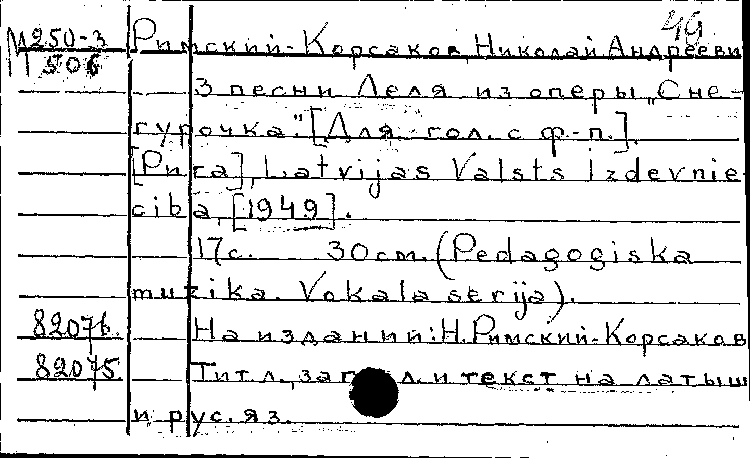 49
М250-3 Римский-Корсаков, Николай Андрееви
506
3 песни Леля из оперы „Сне-
гурочка." [Для гол. с ф-п.].
[Рига], Latvijas Valsts Izdevnie-
ciba, [1949].
17с. 30см. (Pedagogiska
muzika. Vokala serija).
82076. На издании: Н. Римский-Корсаков
82075 Тит. л., загл. и текст на латыш
и рус. яз.